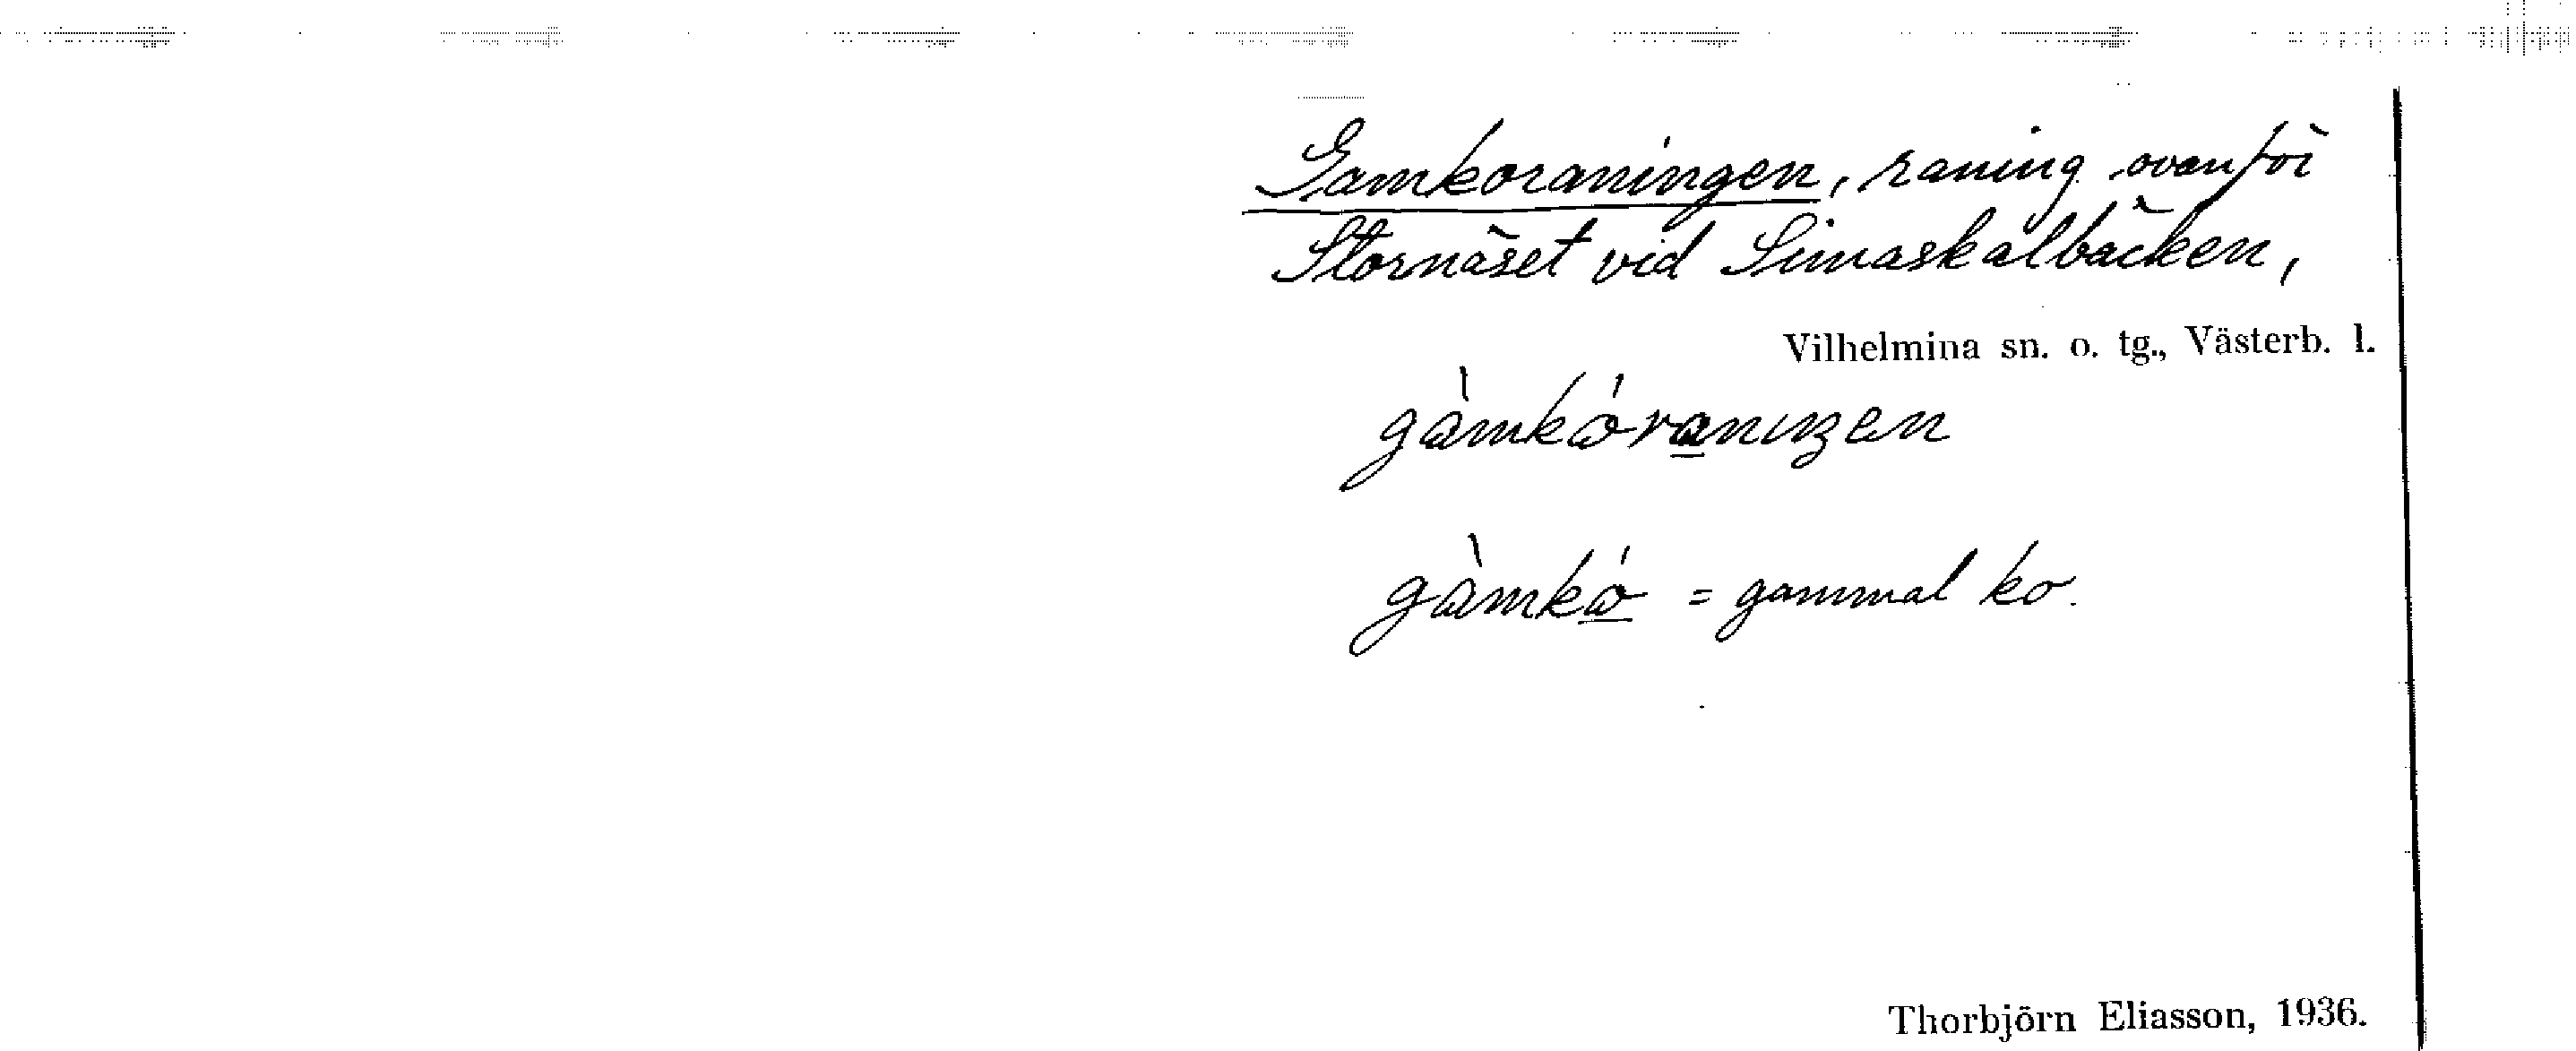 Gamkoraningen, raning ovanför
Stornäset vid Simaskalbäcken,
Vilhelmina sn. o. tg., Västerb. l.
gàmkóraniŋen
gàmkó = gammal ko.
Thorbjörn Eliasson, 1936.